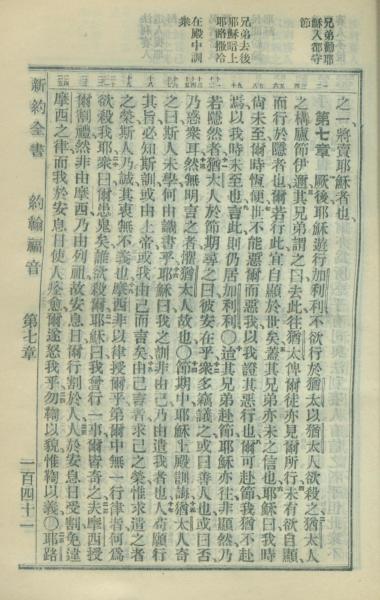 兄弟勸耶
穌入都守
節
兄弟去後
耶穌暗上
耶路撒冷
在殿中訓
衆
之一、將賣耶穌者也、
第七章 厥後耶穌遊行加利利、不欲行於猶太、以猶太人欲殺之、猶太人
之構廬節伊邇、其兄弟謂之曰、去此往猶太、俾爾徒亦見爾所行、未有欲自顯
而行於隱者也、爾若行此、宜自顯於世矣、蓋其兄弟亦未之信也、耶穌曰、我時
尚未至、爾時恆便、世不能惡爾而惡我、以我證其惡行也、爾可赴節、我猶不赴
焉、以我時未至也、言此則仍居加利利〇迨其兄弟赴節、耶穌亦往、非顯然、乃
若隱然者、猶太人於節期尋之曰、彼安在乎、衆多竊議之、或曰善人也、或曰否、
乃惑衆耳、然無明言之者、懼猶太人故也〇節期中、耶穌上殿訓誨、猶太人奇
之曰、斯人未學、何由識書乎、耶穌曰、我之訓非由己、乃由遣我者也、人苟願行
其旨、必知斯訓或由上帝、或我由己而言矣、由己言者、求己之榮、惟求遣之者
之榮、斯人乃誠、其衷無不義也、摩西非以律授爾乎、第爾中無一行律者、何爲
欲殺我耶、衆曰、爾患鬼矣、誰欲殺爾、耶穌曰、我曾行一事、爾皆奇之、夫摩西授
爾割禮、然非由摩西、乃由列祖、故安息日爾行割於人、人於安息日受割、免違
摩西之律、而我於安息日使人痊愈、爾遂怒我乎、勿鞫以貌、惟鞫以義〇耶路
新約全書 約翰福音 第七章 一百四十一